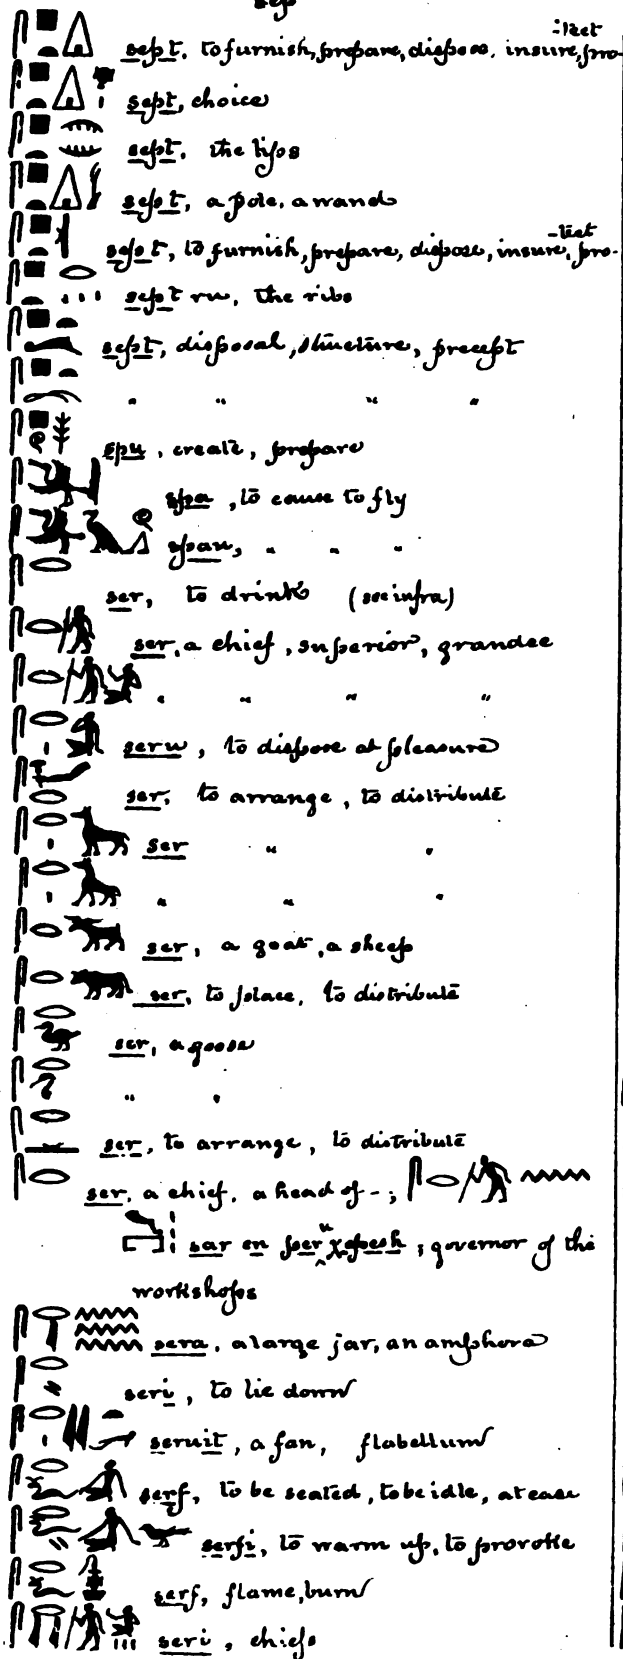 sep
sept, to furnish, prepare, dispose, insure, pro-tect
sept, choice
sept, the lips
sept, a pole, a wand
sept, to furnish, prepare, dispose, insure, pro-tect
sept ru, the ribs
sept, disposal, structure, precept
" " " "
spu, create, prepare
spa, to cause to fly
span, " " "
ser, to drink (see infra)
ser, a chief, superior, grandee
" " " "
seru, to dispose at pleasure
ser, to arrange, to distribute
ser " "
" " "
ser, a goat, a sheep
ser, to place, to distribute
ser, a goose
" "
ser, to arrange, to distribute
ser, a chief, a head of -;
sar en per u χepesh, governor of the
workshops
sera, a large jar, an amphora
seri, to lie down
seruit, a fan, flabellum
serf, to be seated, to be idle, at ease
serfi, to warm up, to provoke
serf, flame, burn
seri, chiefs